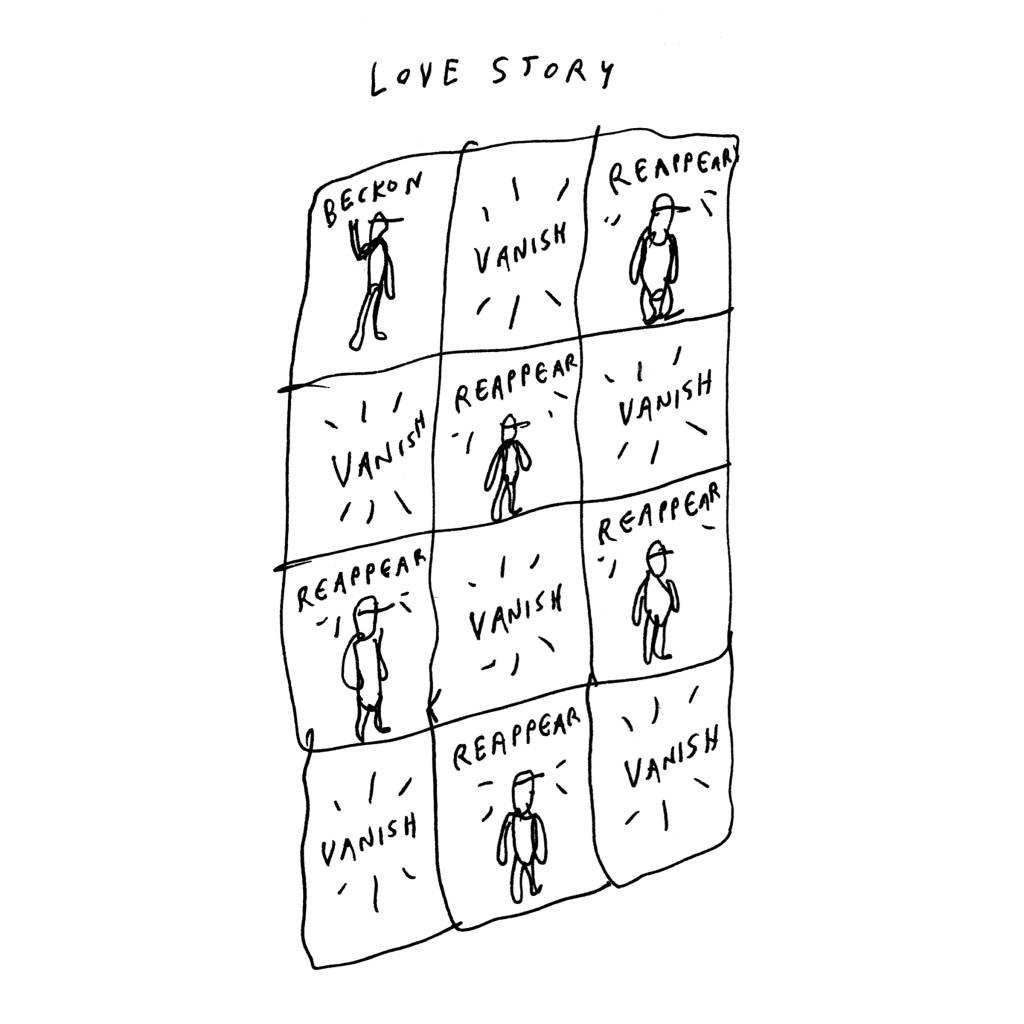 LOVE STORY
BECKON
VANISH
REAPPEAR
VANISH
REAPPEAR
VANISH
REAPPEAR
VANISH
REAPPEAR
VANISH
REAPPEAR
VANISH